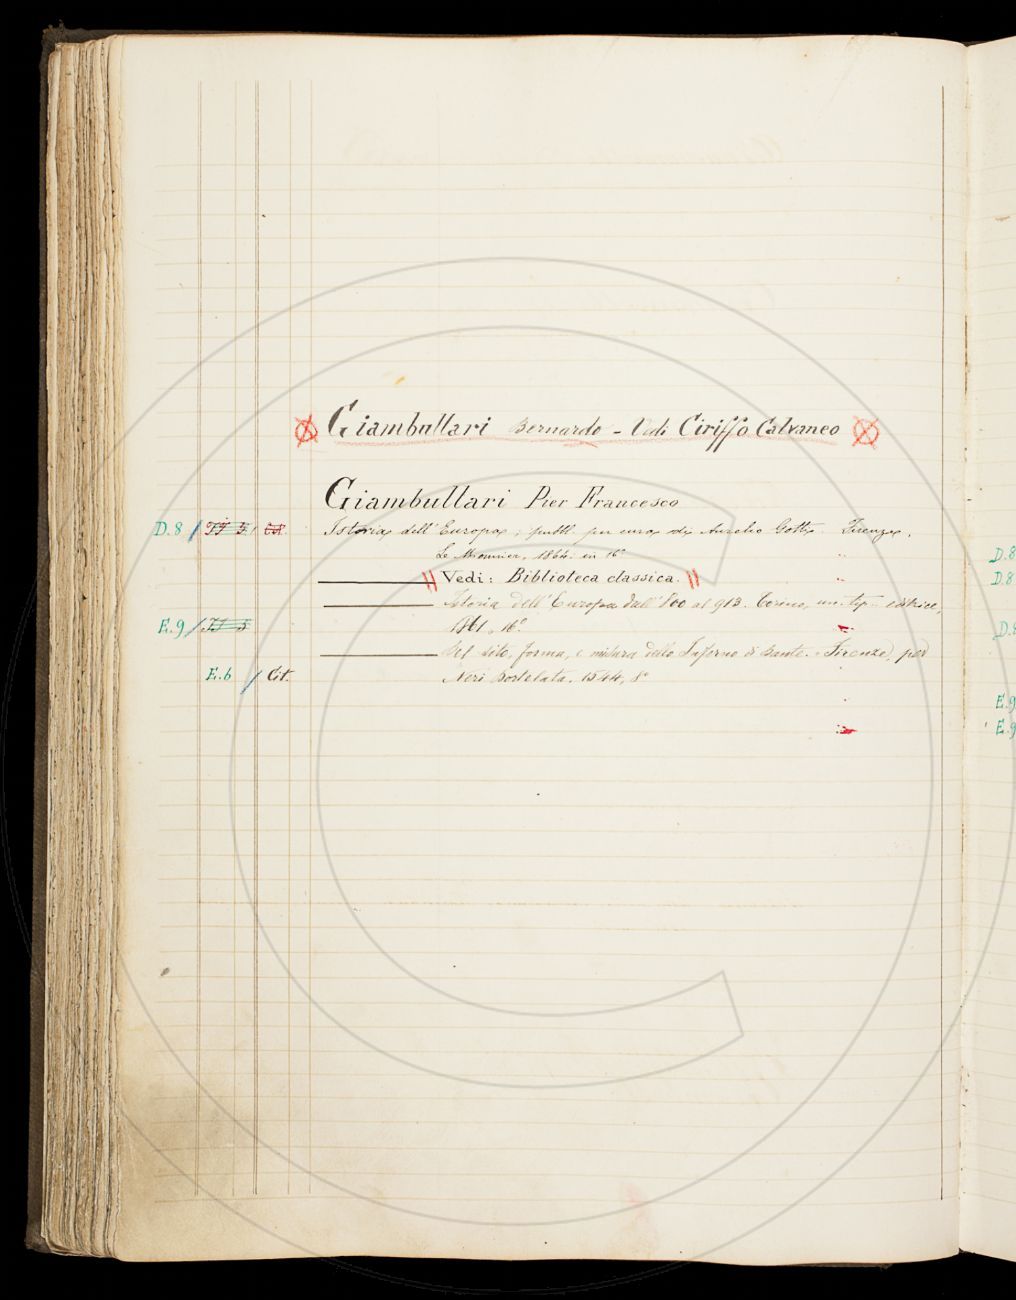 Giambullari Bernardo - Vedi Ciriffo Calvaneo
Giambullari Pier Francesco
D.8 / Istoria dell'Europa; pubbl. per cura di Aurelio Gotti. Firenze,
Le Monnier, 1864. in 16°
Vedi: Biblioteca classica.
Istoria dell'Europa dall'800 al 913. Torino, un. tip. editrice,
E.9 / 1861, 16°.
Del sito, forma, e misura dello Inferno di Dante. - Firenze, per
E.6 / Neri Dortelata. 1544, 8°
D.8
D.8
E.9
E.9